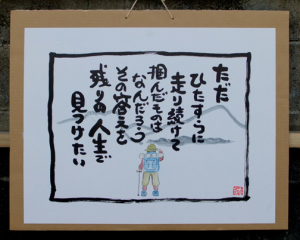 ただ
ひたすらに
走り続けて
掴んだものは
なんだろう
その答えを
残りの人生で
見つけたい